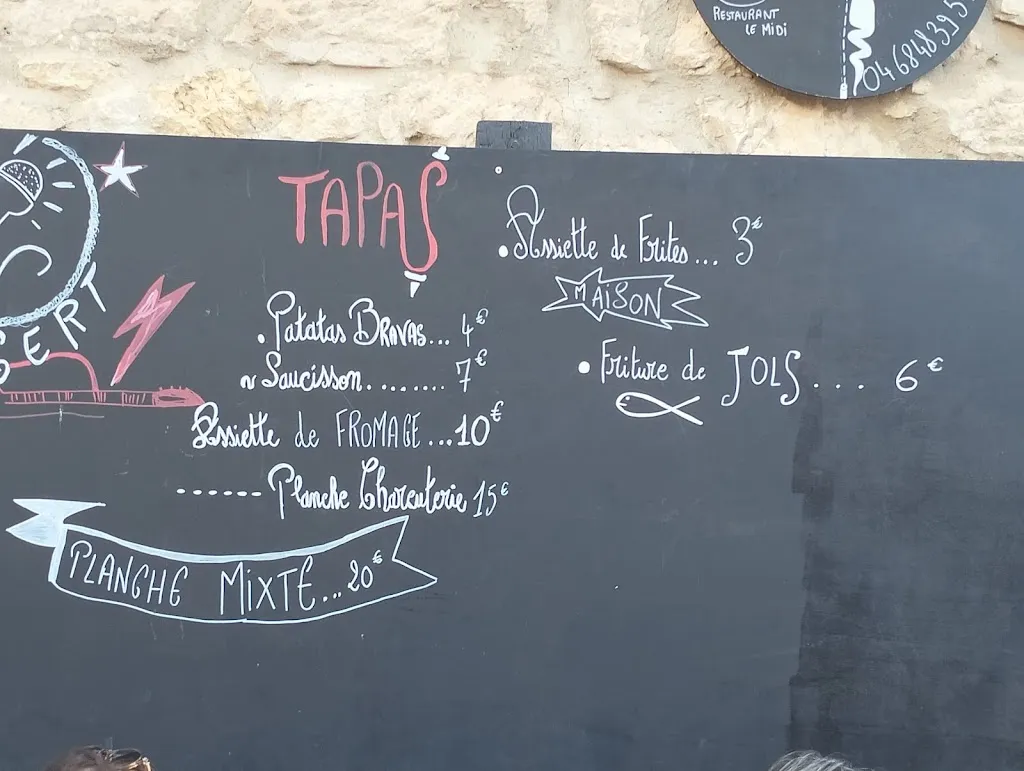 RESTAURANT
LE MIDI
04 68 48 39 5
TAPAS
. Patatas BRAVAS... 4€
~ Saucisson........ 7€
Assiette de FROMAGE...10€
------ Planche Charcuterie 15€
PLANCHE MIXTE... 20€
• Assiette de Frites... 3€
MAISON
• Friture de JOLS.... 6€